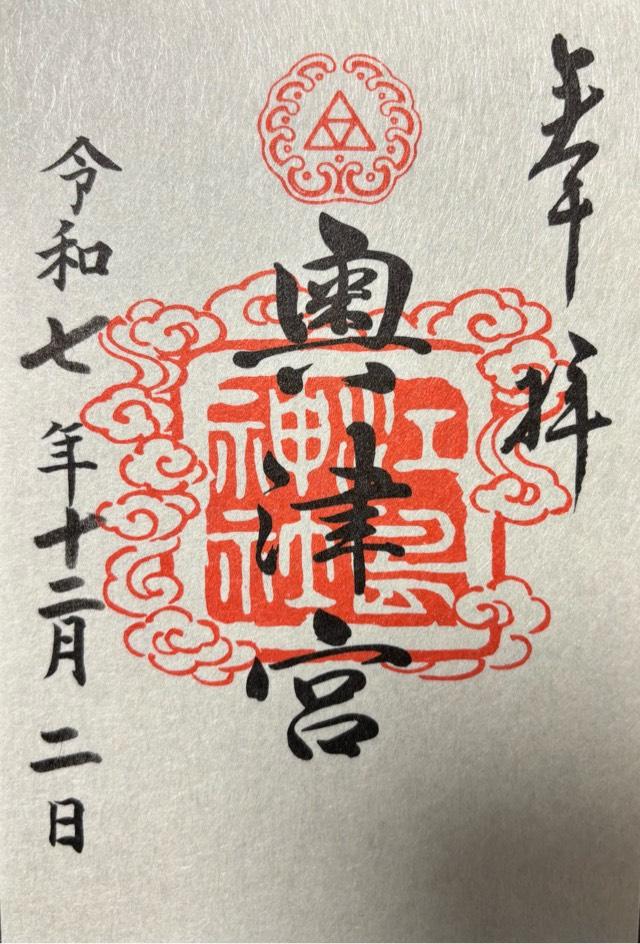 奉拝
奥津宮
江島
神社
令和七年十二月二日